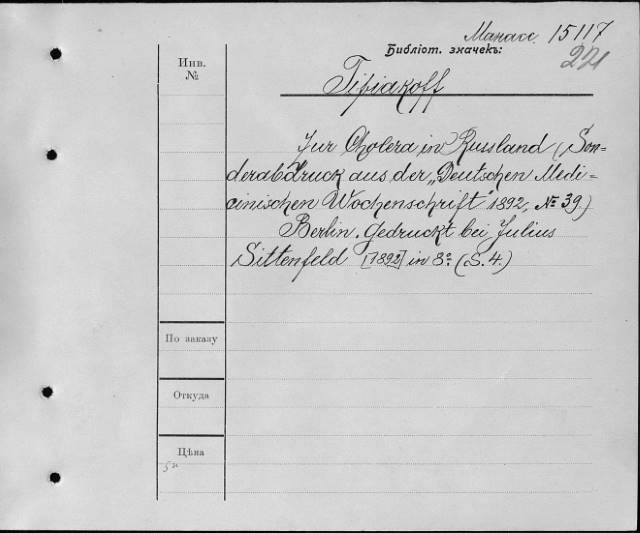 Манасс. 15117
Библіот. значекъ:
221
Инв.
№
Tißiakoff
Zur Cholera in Russland (Son-
derabdruck aus der „Deutschen Medi-
cinischen Wochenschrift" 1892, № 39.)
Berlin. Gedruckt bei Julius
Sittenfeld [1892] in 8º. (S. 4.)
По заказу
Откуда
Цѣна